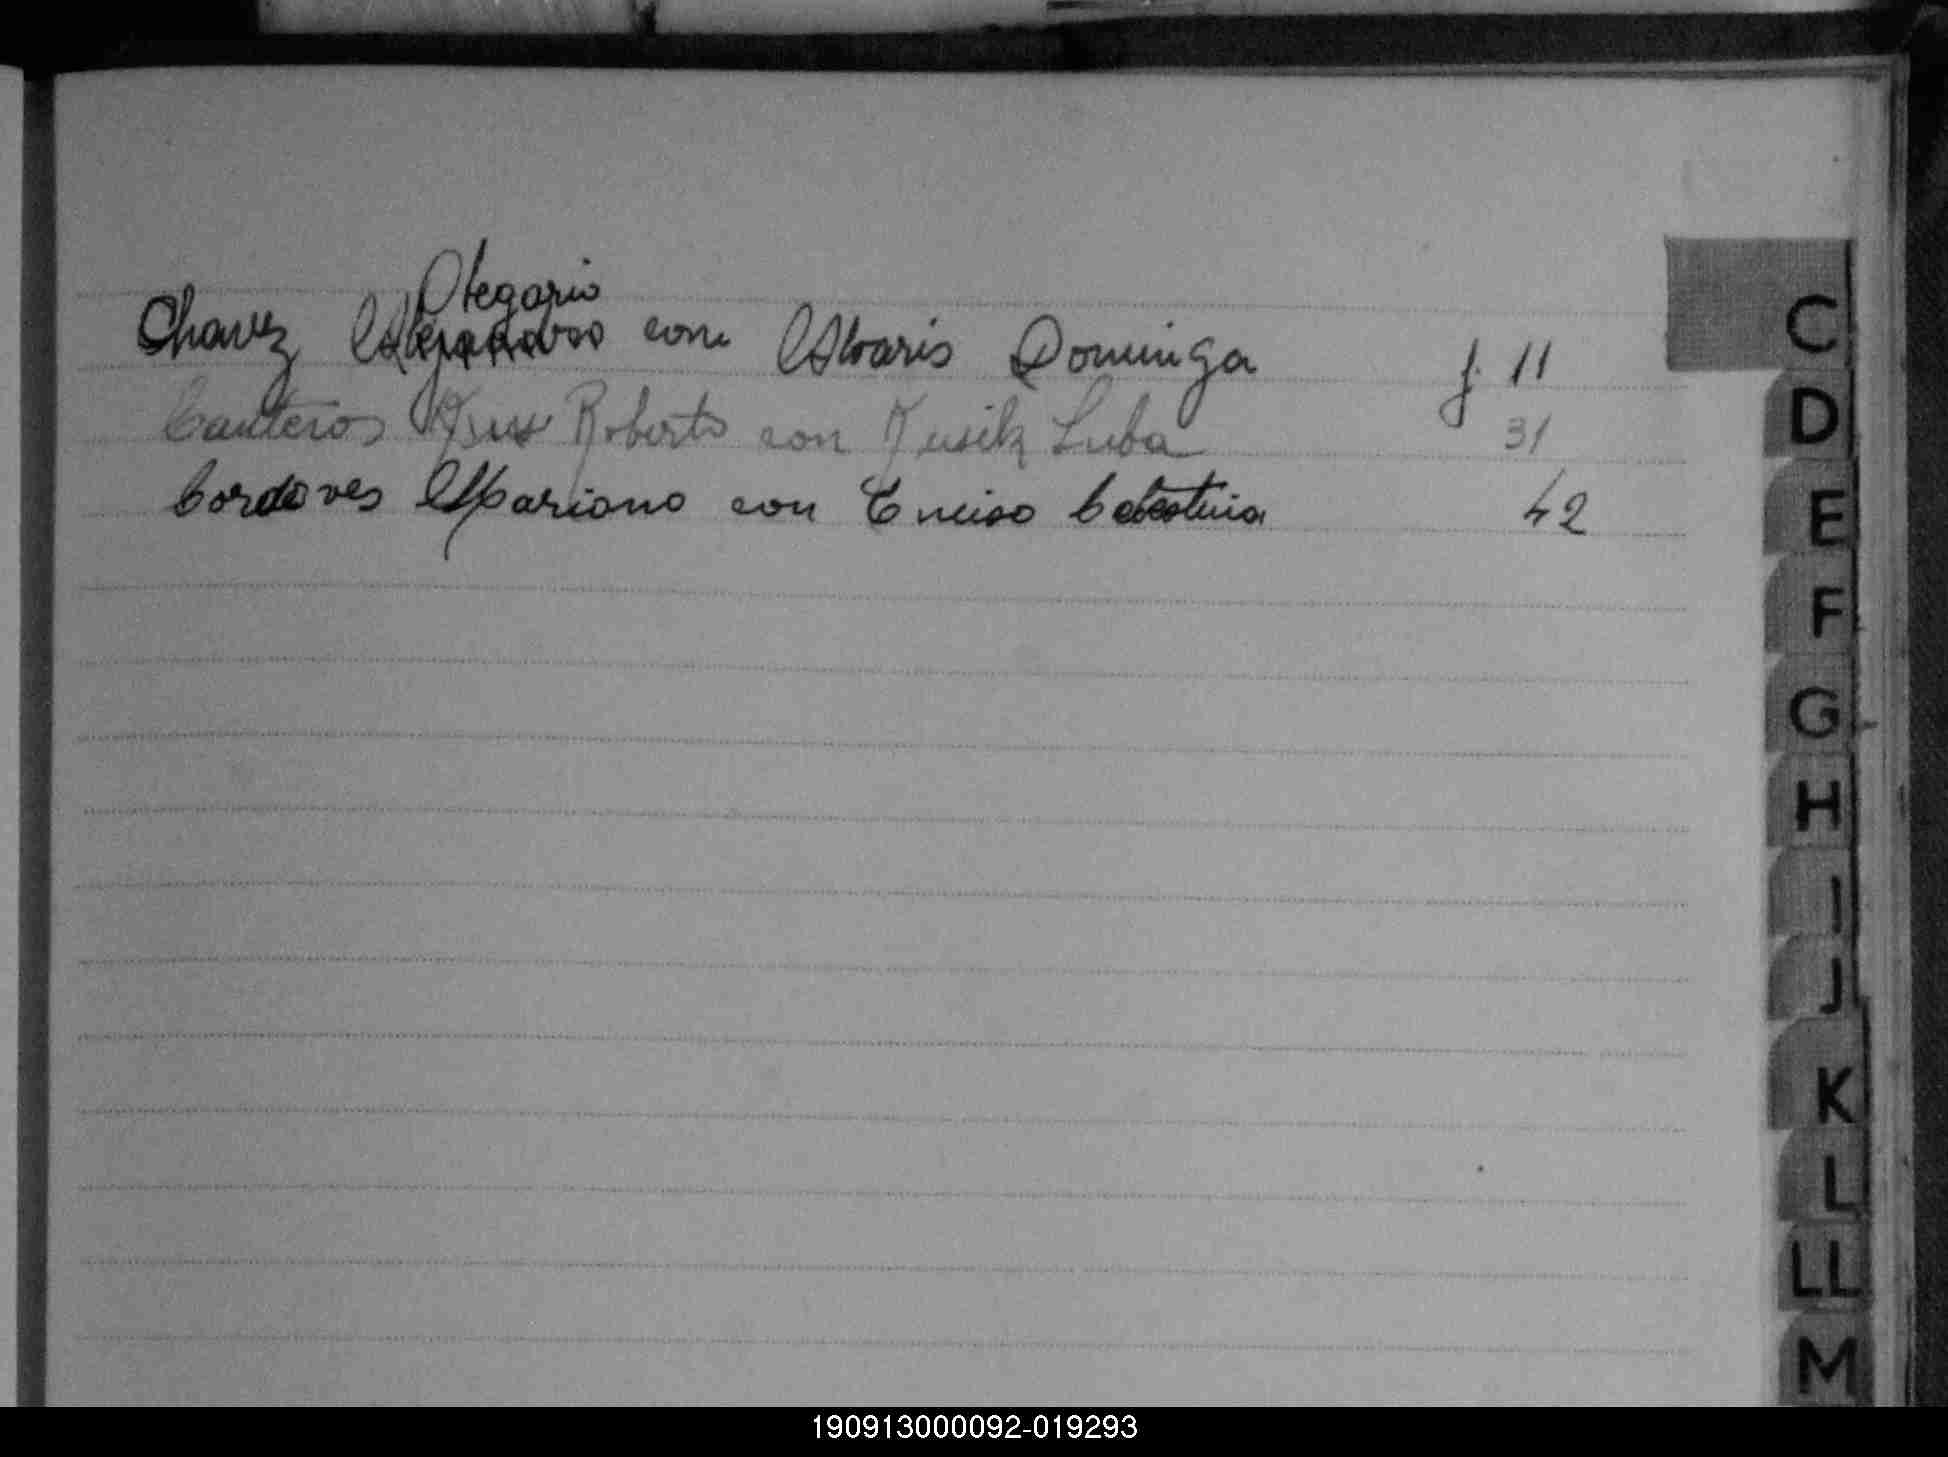 Olegario
Chavez Alejandro con Alvaris Dominga f. 11
Canteros Roberto con Kusik Luba 31
Cordoves Mariano con Enciso Celestina 42
C
D
E
F
G
H
I
J
K
L
LL
M
190913000092-019293